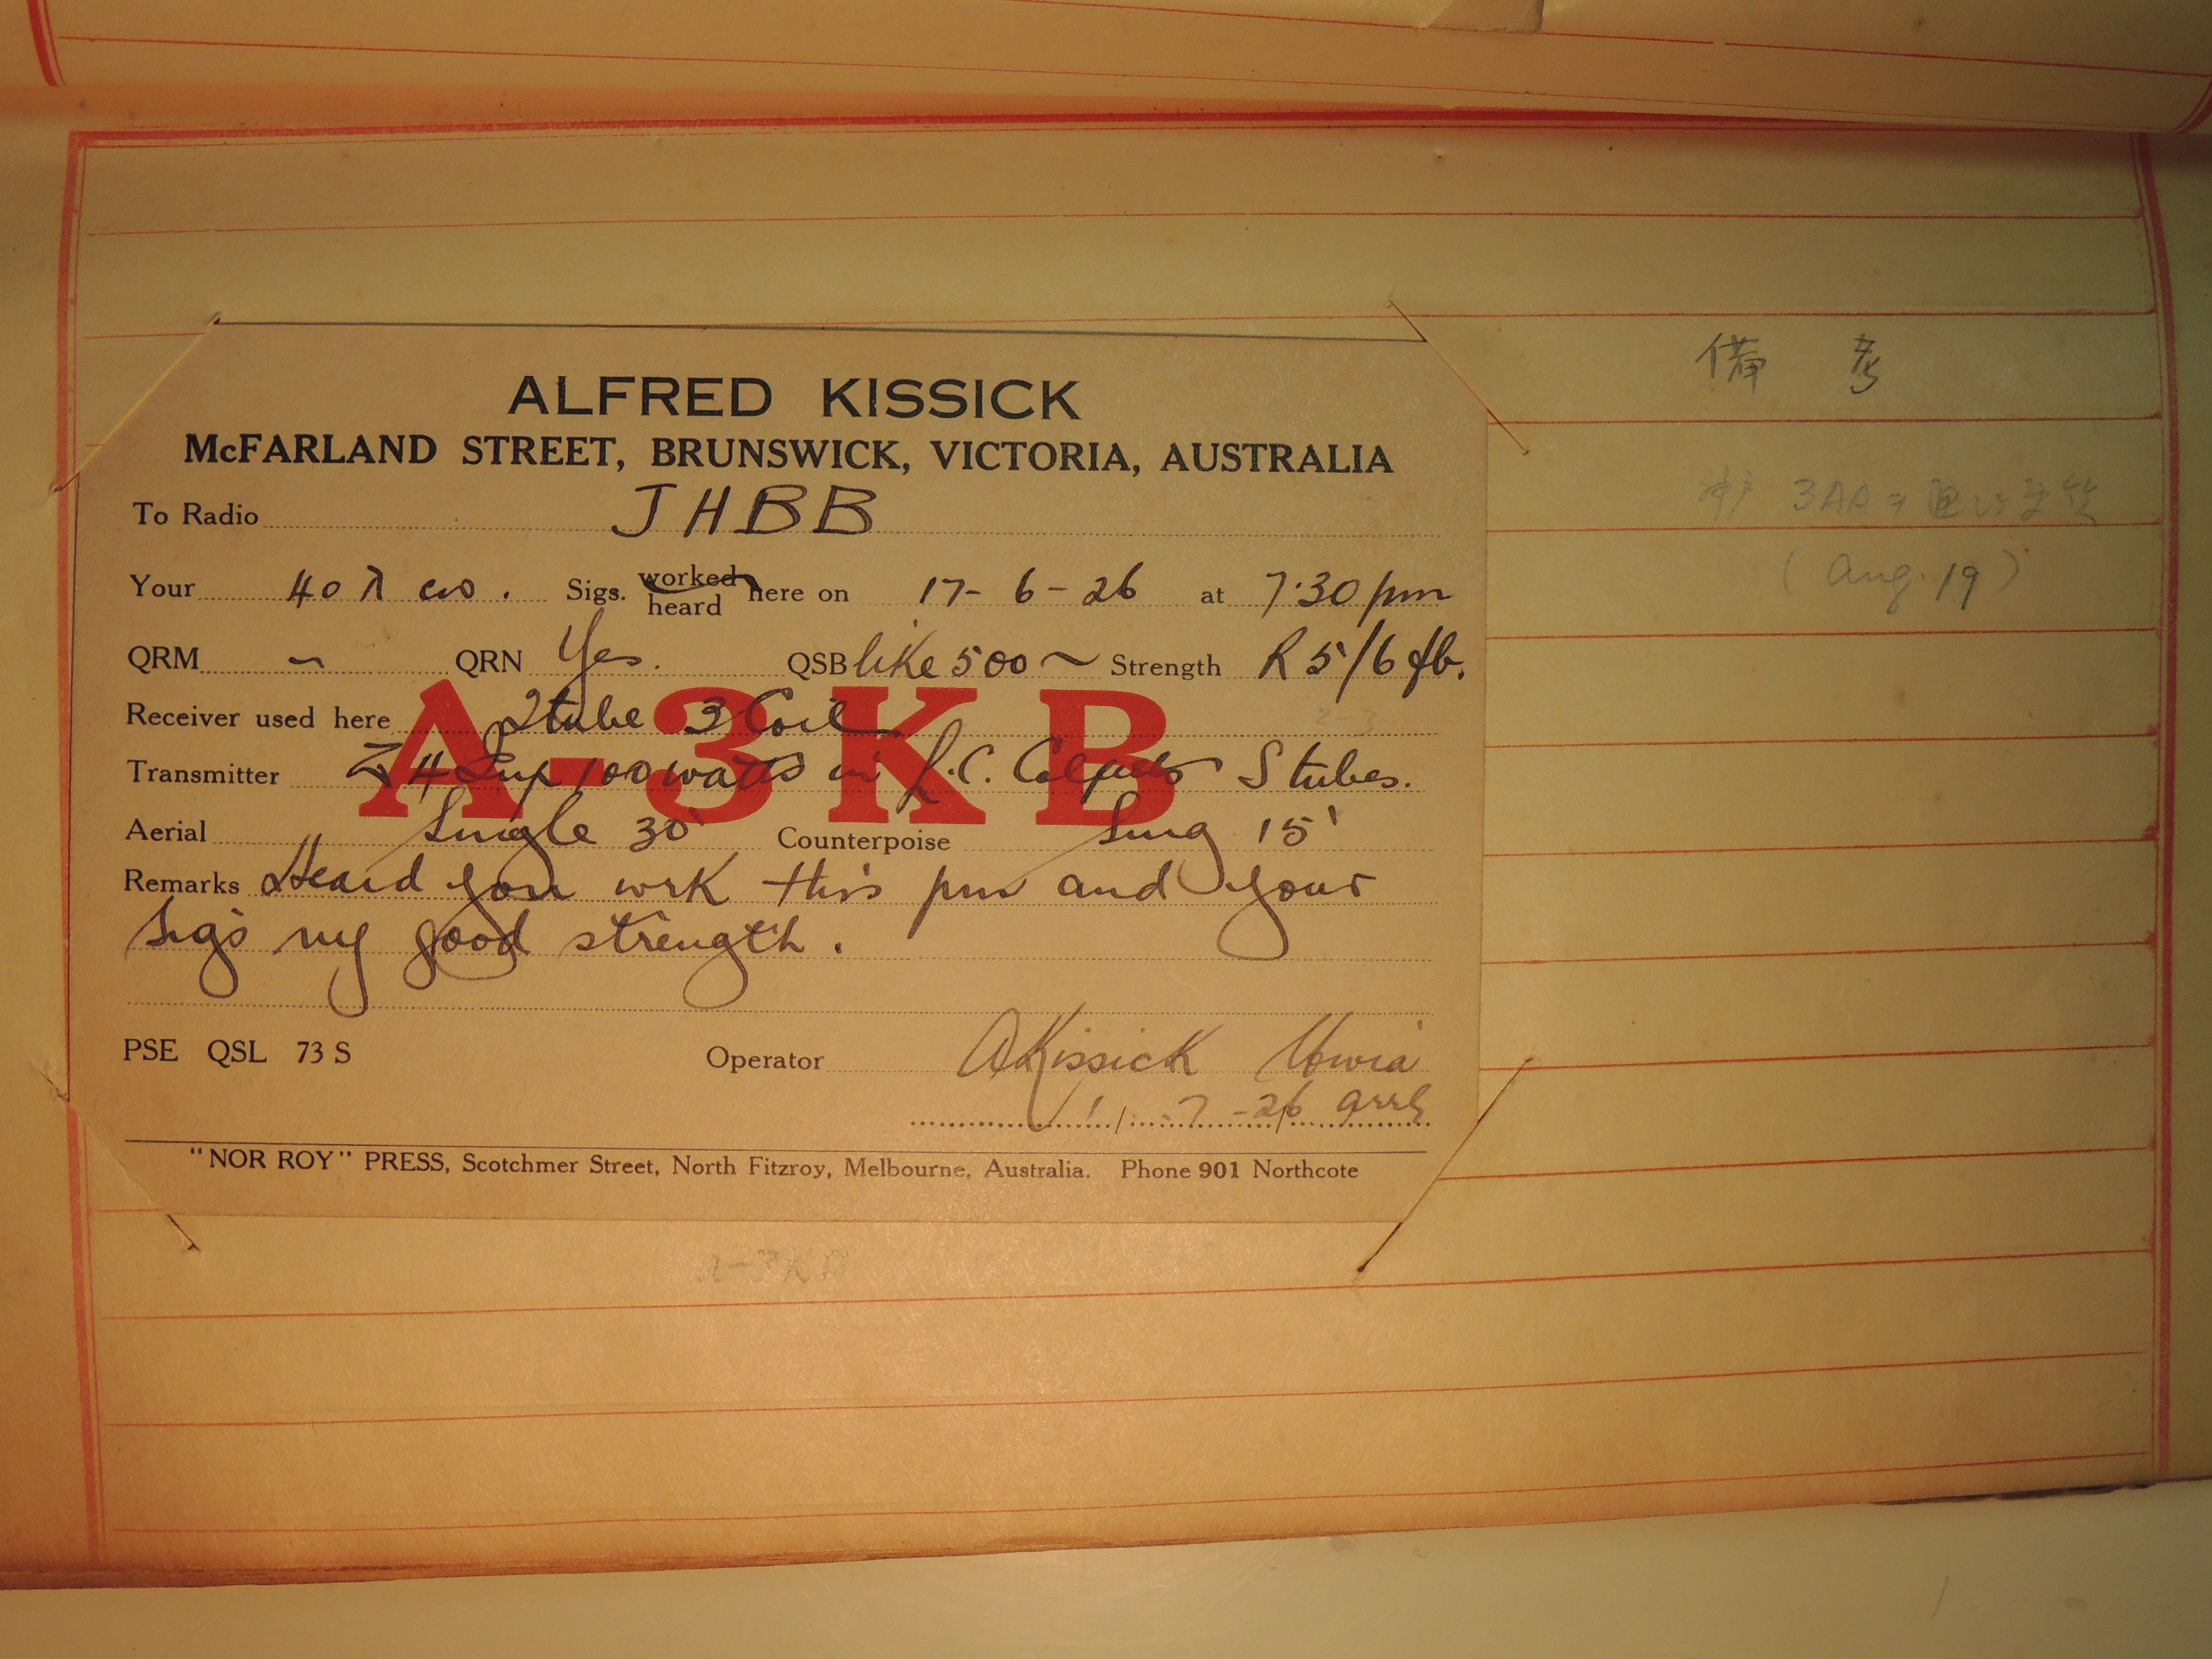 ALFRED KISSICK
McFARLAND STREET, BRUNSWICK, VICTORIA, AUSTRALIA
To Radio JHBB
Your 40 λ cw. Sigs. worked heard here on 17-6-26 at 7.30 pm
QRM ~ QRN Yes. QSB like 500 ~ Strength R 5/6 fb.
A-3KB
Receiver used here 2 tube 3 Coil
Transmitter 100 watts in L.C. Colpitts S tubes.
Aerial Single 30' Counterpoise Sing 15'
Remarks Heard you wrk this pm and your
sigs vy good strength.
PSE QSL 73 S Operator AKissick
1/-7-26 arrl
"NOR ROY" PRESS, Scotchmer Street, North Fitzroy, Melbourne, Australia. Phone 901 Northcote
備考
3AA
(Aug. 19)